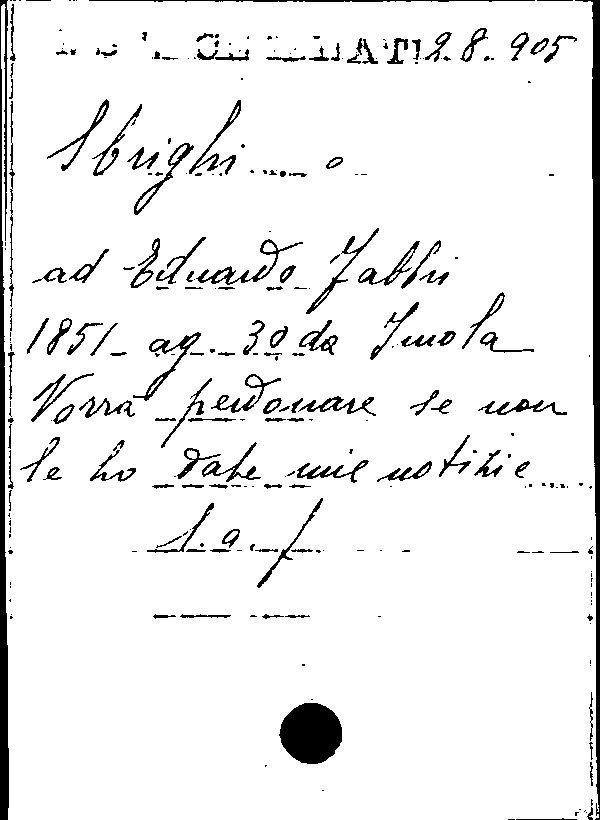 28. 905
Sbrighi .... o
ad Eduardo Fabbri
1851 - ag. 30 da Imola
Vorrà perdonare se non
le ho date mie notizie .....
l. a. f